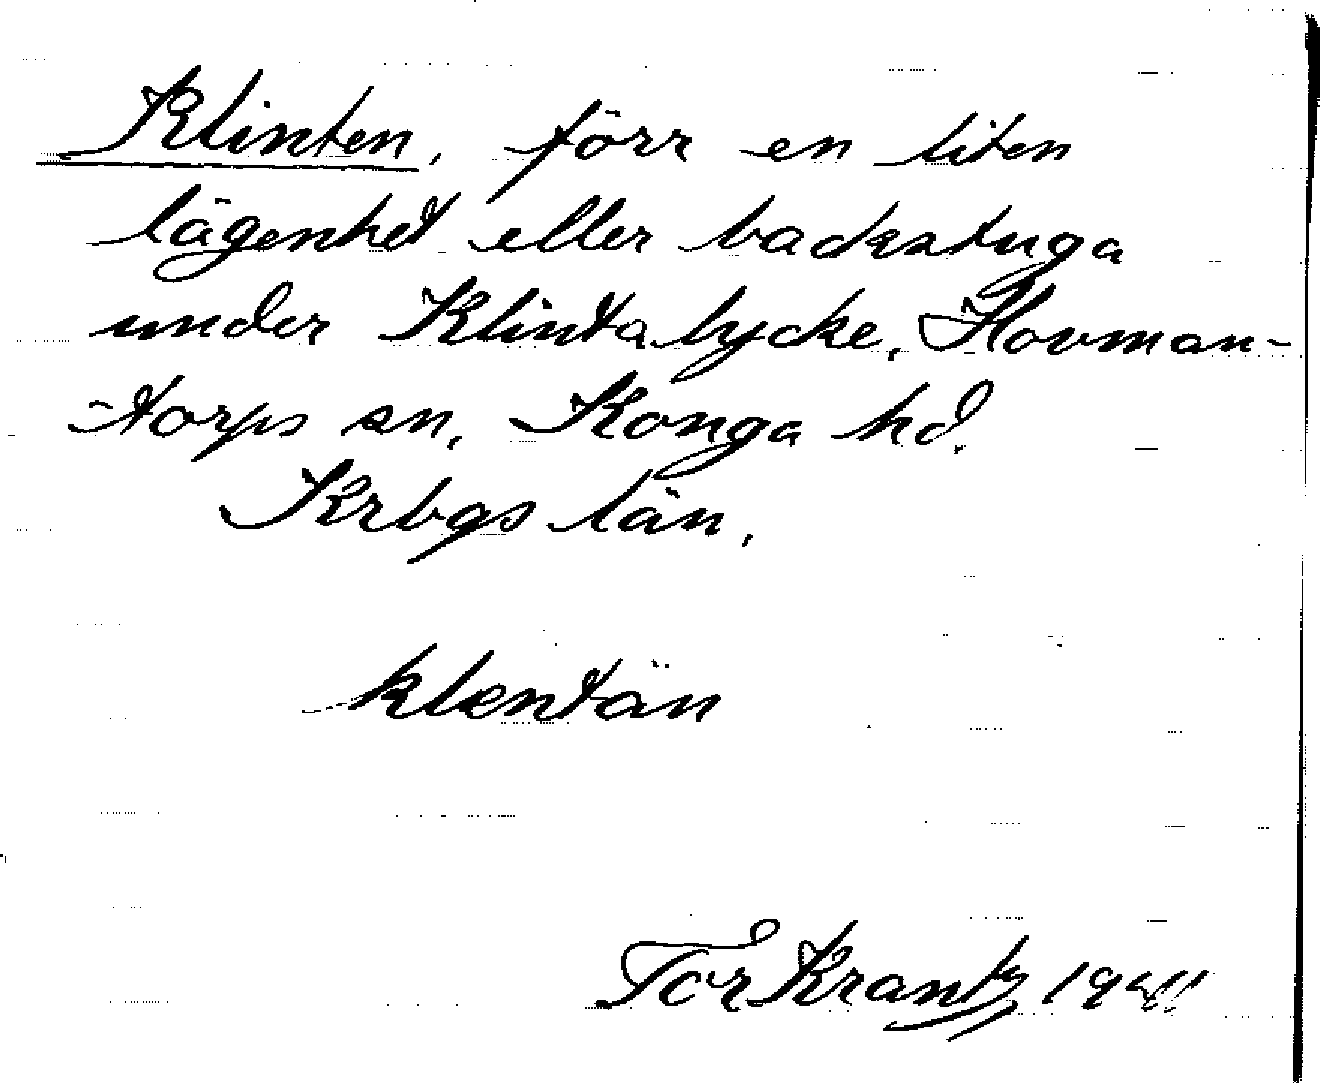 Klinten, förr en liten
lägenhet eller backstuga
under Klintalycke, Hovman-
torps sn, Konga hd.
Krbgs län.
klentän
Tor Krantz 1941